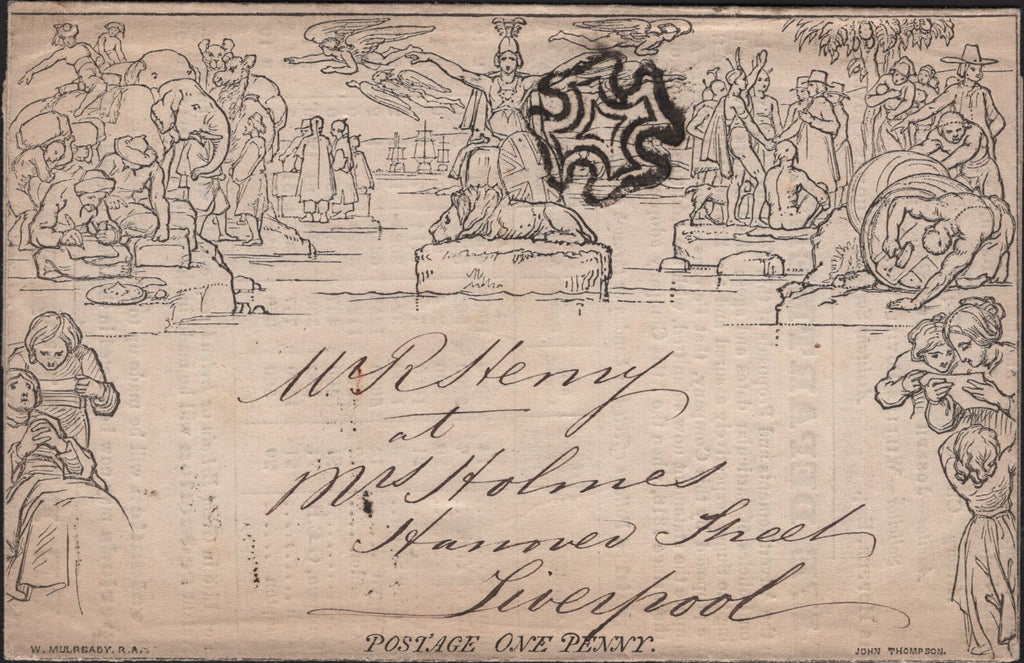 Mr R Henry
at
Mrs Holmes
Hanover Street
Liverpool
POSTAGE ONE PENNY.
W. MULREADY, R.A.
JOHN THOMPSON.